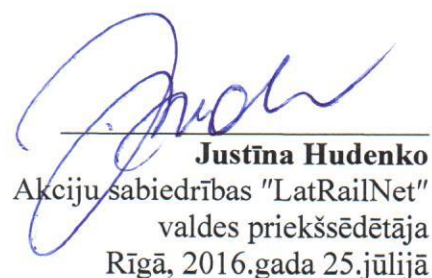 Justīna Hudenko
Akciju sabiedrības "LatRailNet"
valdes priekšsēdētāja
Rīgā, 2016.gada 25.jūlijā